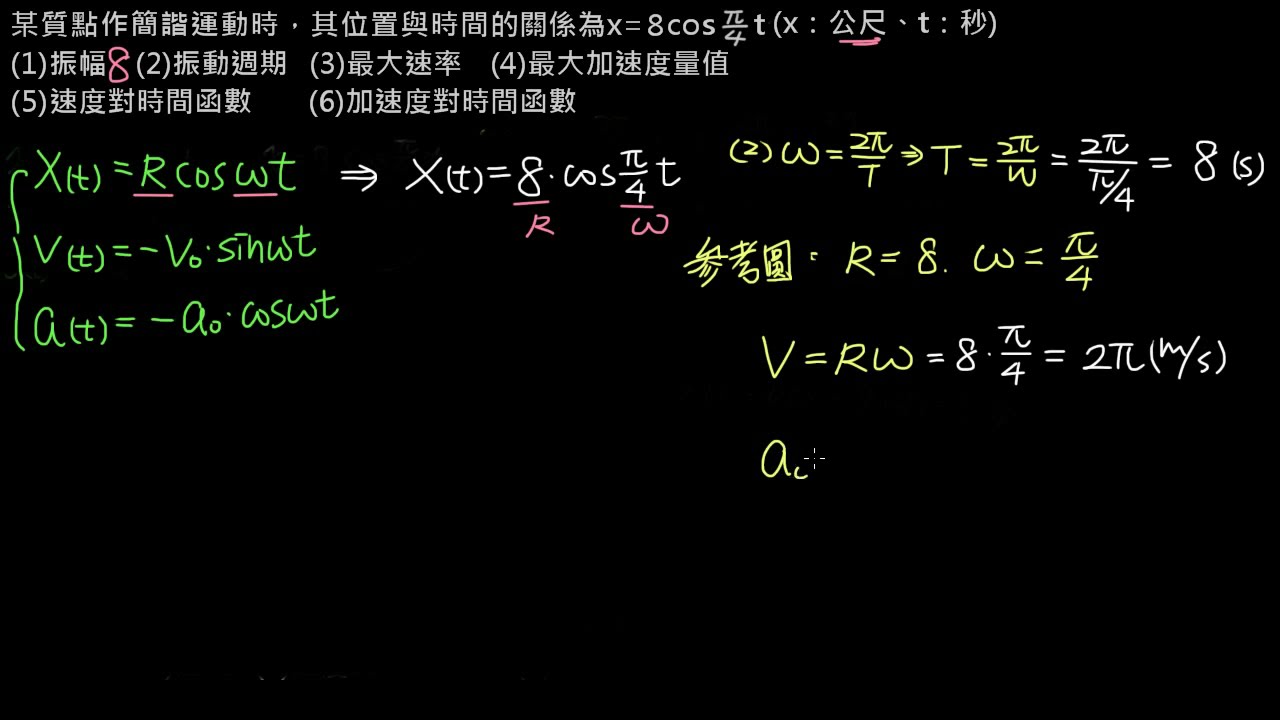 某質點作簡諧運動時，其位置與時間的關係為x=8cos π/4 t (x：公尺、t：秒)
(1)振幅8 (2)振動週期 (3)最大速率 (4)最大加速度量值
(5)速度對時間函數 (6)加速度對時間函數
X(t)=R cos ωt ⇒ X(t)=8·cos π/4 t
R ω
V(t)=-V₀·sin ωt
a(t)=-a₀·cos ωt
(2) ω=2π/T ⇒ T=2π/ω=2π/(π/4)=8(s)
參考圓：R=8. ω=π/4
V=Rω=8·π/4=2π(m/s)
a